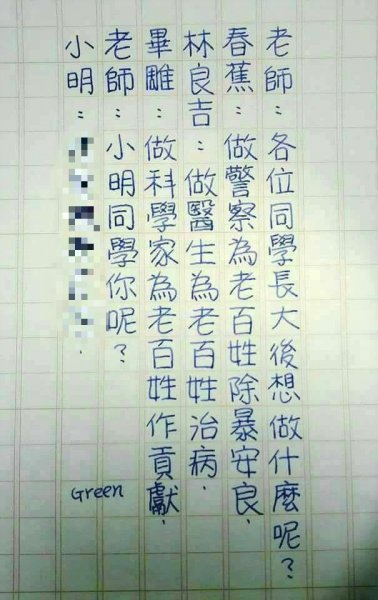 老師：各位同學長大後想做什麼呢？
春蕉：做警察為老百姓除暴安良．
林良吉：做醫生為老百姓治病．
畢雕：做科學家為老百姓作貢獻．
老師：小明同學你呢？
小明：
Green